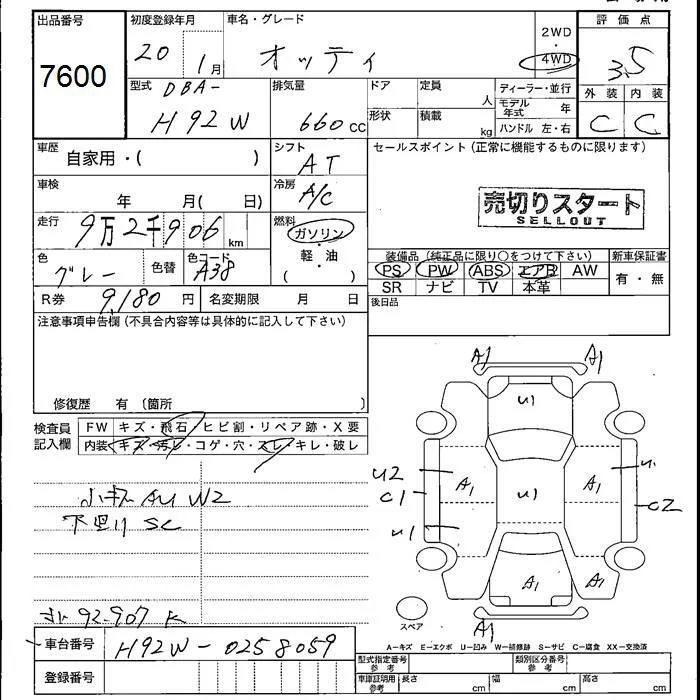 出品番号 初度登録年月 車名・グレード 2WD・4WD 評価点
7600 20 1月 オッティ 3.5
型式 DBA- H92W 排気量 660cc ドア 定員 人 ディーラー・並行 外装 内装
形状 積載 kg モデル年式 年 C C
ハンドル 左・右
車歴 自家用・( ) シフト AT セールスポイント(正常に機能するものに限ります)
車検 年 月( 日) 冷房 A/C
売切りスタート
SELLOUT
走行 9万2千906km 燃料 ガソリン・軽油( )
色 グレー 色替 色コード A38 装備品(純正品に限り○をつけて下さい) 新車保証書
PS PW ABS エアB AW 有・無
SR ナビ TV 本革
R券 9,180円 名変期限 月 日 後日品
注意事項申告欄(不具合内容等は具体的に記入して下さい)
修復歴 有〔箇所
検査員記入欄 FW キズ・飛石・ヒビ割・リペア跡・X要
内装 キズ・汚レ・コゲ・穴・スレ・キレ・破レ
A1 A1
U1
U2 A1 U1 A1 U1
C1 C2
U1
A1 A1
A1
AU W2
下廻り SC
92,907 K
スペア
A−キズ E−エクボ U−凹み W−補修跡 S−サビ C−腐食 XX−交換済
車台番号 H92W-0258059
登録番号
型式指定番号参考 類別区分番号参考
車庫証明用参考 長さ cm 幅 cm 高さ cm